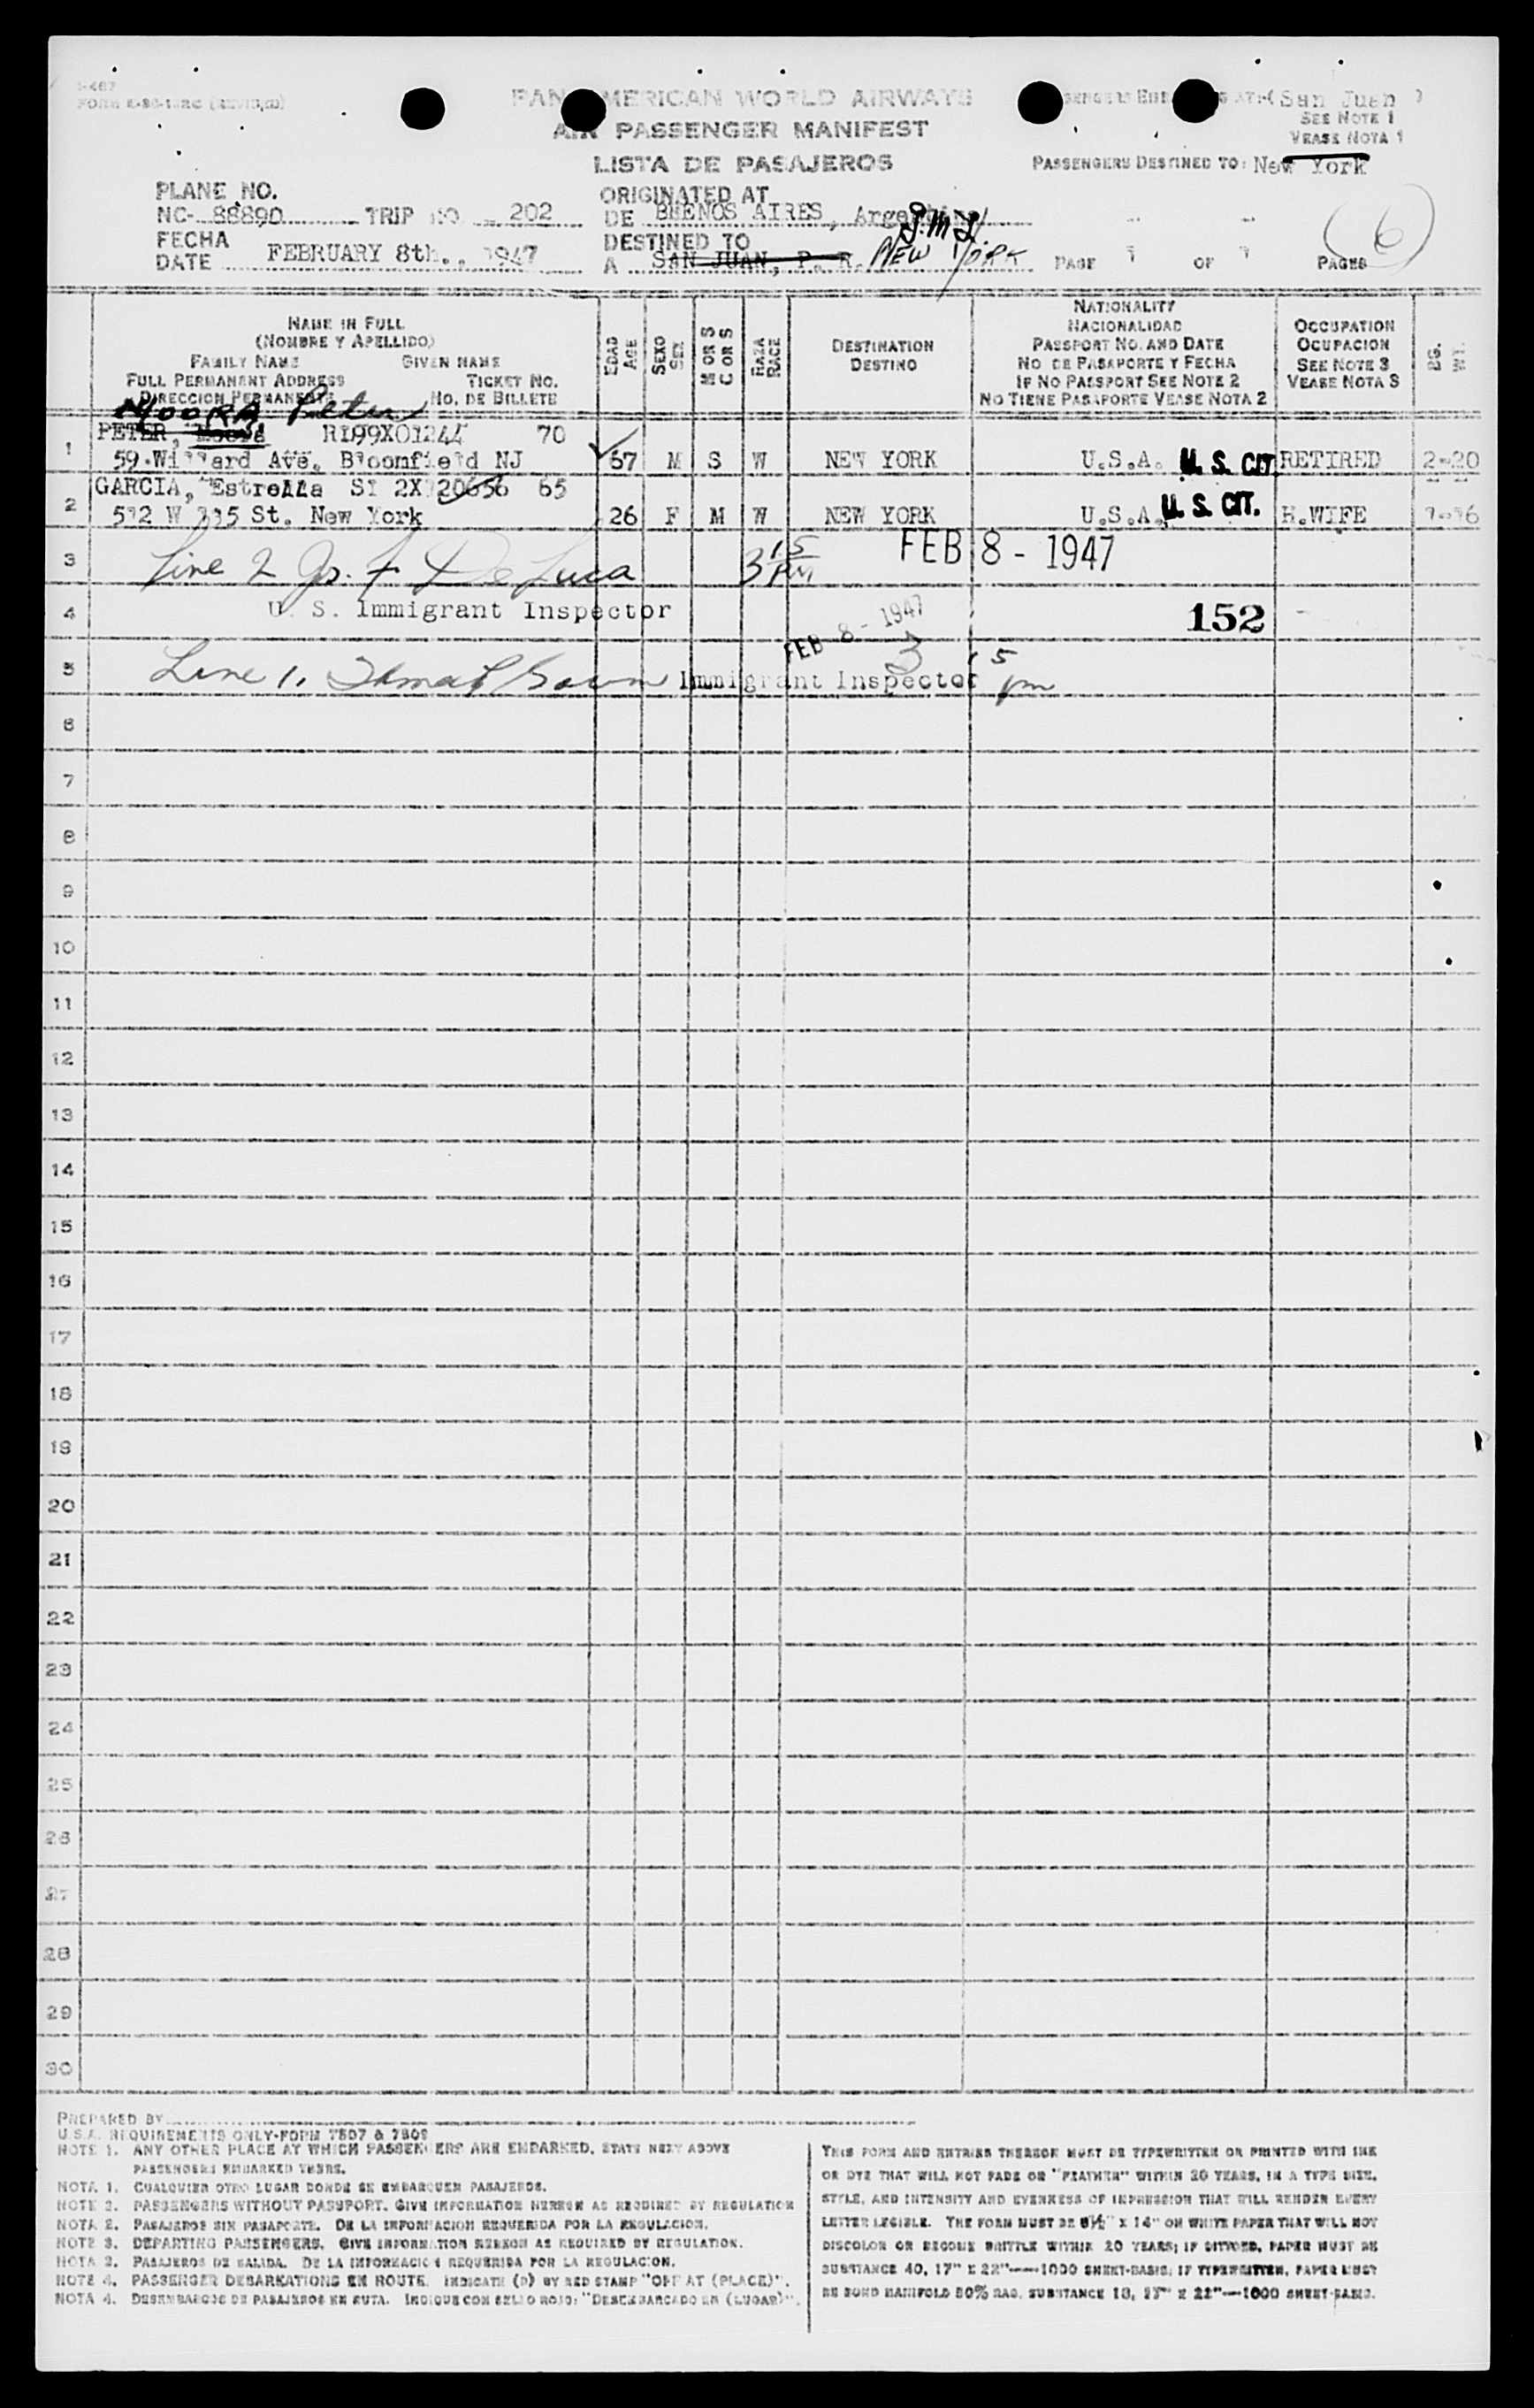 I-467
PAN AMERICAN WORLD AIRWAYS
AIR PASSENGER MANIFEST
LISTA DE PASAJEROS
(San Juan)
SEE NOTE 1
VEASE NOTA 1
PASSENGERS DESTINED TO: New York
PLANE NO.
NC- 88890 TRIP NO. 202
FECHA
DATE FEBRUARY 8th., 1947
ORIGINATED AT
DE BUENOS AIRES, Argentina
DESTINED TO
A SAN JUAN, P. R. NEW YORK
PAGE 1 OF 1 PAGES
(6)
NAME IN FULL
(NOMBRE Y APELLIDO)
FAMILY NAME GIVEN NAME
FULL PERMANENT ADDRESS TICKET NO.
DIRECCION PERMANENTE NO. DE BILLETE
EDAD
AGE
SEXO
SEX
M OR S
C OR S
RAZA
RACE
DESTINATION
DESTINO
NATIONALITY
NACIONALIDAD
PASSPORT NO. AND DATE
NO DE PASAPORTE Y FECHA
IF NO PASSPORT SEE NOTE 2
NO TIENE PASAPORTE VEASE NOTA 2
OCCUPATION
OCUPACION
SEE NOTE 3
VEASE NOTA 3
BG.
WT.
MOORA Peter
PETER, R199X01244 70
1 59 Willard Ave. Bloomfield NJ 67 M S W NEW YORK U.S.A. U. S. CIT. RETIRED 2-20
GARCIA, Estrella SI 2X 20656 65
2 512 W 135 St. New York 26 F M W NEW YORK U.S.A. U. S. CIT. H.WIFE
3 Line 2 De Luca 3 15 PM FEB 8 - 1947
4 U. S. Immigrant Inspector FEB 8 - 1947 152
5 Line 1. Immigrant Inspector 3 15 pm
6
7
8
9
10
11
12
13
14
15
16
17
18
19
20
21
22
23
24
25
26
27
28
29
30
PREPARED BY
U.S.A. REQUIREMENTS ONLY-FORM 7507 & 7509
NOTE 1. ANY OTHER PLACE AT WHICH PASSENGERS ARE EMBARKED, STATE NEXT ABOVE
PASSENGERS EMBARKED THERE.
NOTA 1. CUALQUIER OTRO LUGAR DONDE SE EMBARQUEN PASAJEROS.
NOTE 2. PASSENGERS WITHOUT PASSPORT. GIVE INFORMATION HEREON AS REQUIRED BY REGULATION
NOTA 2. PASAJEROS SIN PASAPORTE. DE LA INFORMACION REQUERIDA POR LA REGULACION.
NOTE 3. DEPARTING PASSENGERS. GIVE INFORMATION HEREON AS REQUIRED BY REGULATION.
NOTA 3. PASAJEROS DE SALIDA. DE LA INFORMACION REQUERIDA POR LA REGULACION.
NOTE 4. PASSENGER DEBARKATIONS EN ROUTE. INDICATE (D) BY RED STAMP "OFF AT (PLACE)".
NOTA 4. DESEMBARCOS DE PASAJEROS EN RUTA. INDIQUE CON SELLO ROJO: "DESEMBARCADO EN (LUGAR)".
THIS FORM AND ENTRIES THEREON MUST BE TYPEWRITTEN OR PRINTED WITH INK
OR DYE THAT WILL NOT FADE OR "FEATHER" WITHIN 20 YEARS, IN A TYPE SIZE,
STYLE, AND INTENSITY AND EVENNESS OF IMPRESSION THAT WILL RENDER EVERY
LETTER LEGIBLE. THE FORM MUST BE 8½" X 14" ON WHITE PAPER THAT WILL NOT
DISCOLOR OR BECOME BRITTLE WITHIN 20 YEARS; IF DITTOED, PAPER MUST BE
SUBSTANCE 40, 17" X 22"—1000 SHEET-BASIS; IF TYPEWRITTEN, PAPER MUST
BE BOND MANIFOLD 50% RAG, SUBSTANCE 18, 17" X 22"—1000 SHEET-BASIS.